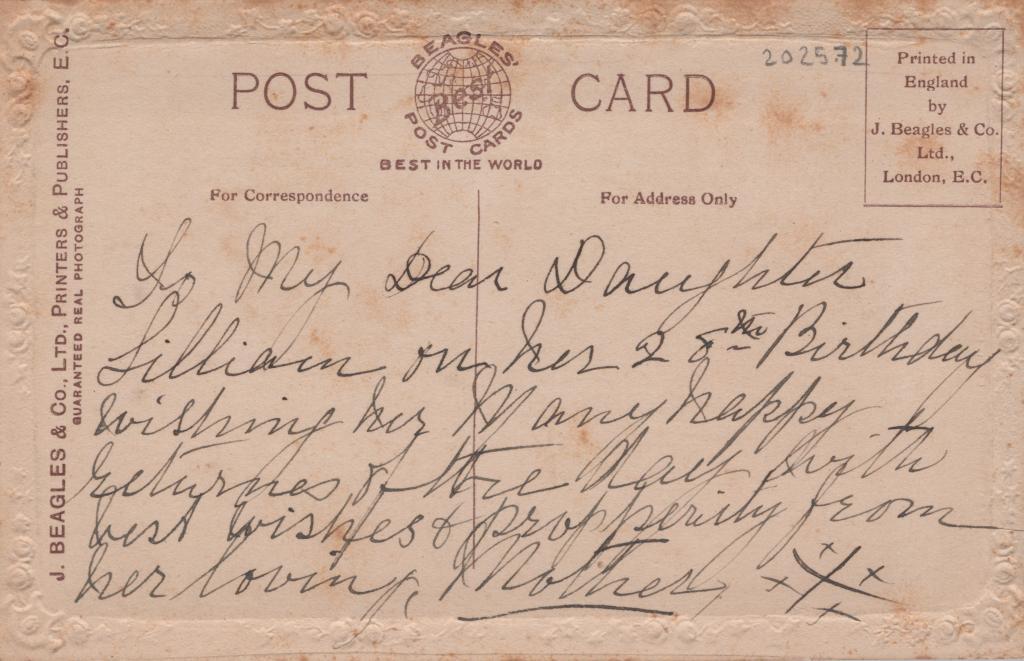 BEAGLES'
Best
POST CARDS
BEST IN THE WORLD
POST CARD
202572
Printed in
England
by
J. Beagles & Co.
Ltd.,
London, E.C.
J. BEAGLES & Co., LTD., PRINTERS & PUBLISHERS, E.C.
GUARANTEED REAL PHOTOGRAPH
For Correspondence
For Address Only
To My Dear Daughter
Lilliam on her 28th Birthday
wishing her Many happy
returnes of the day with
best wishes & propsperity from
her loving, Mother x X x